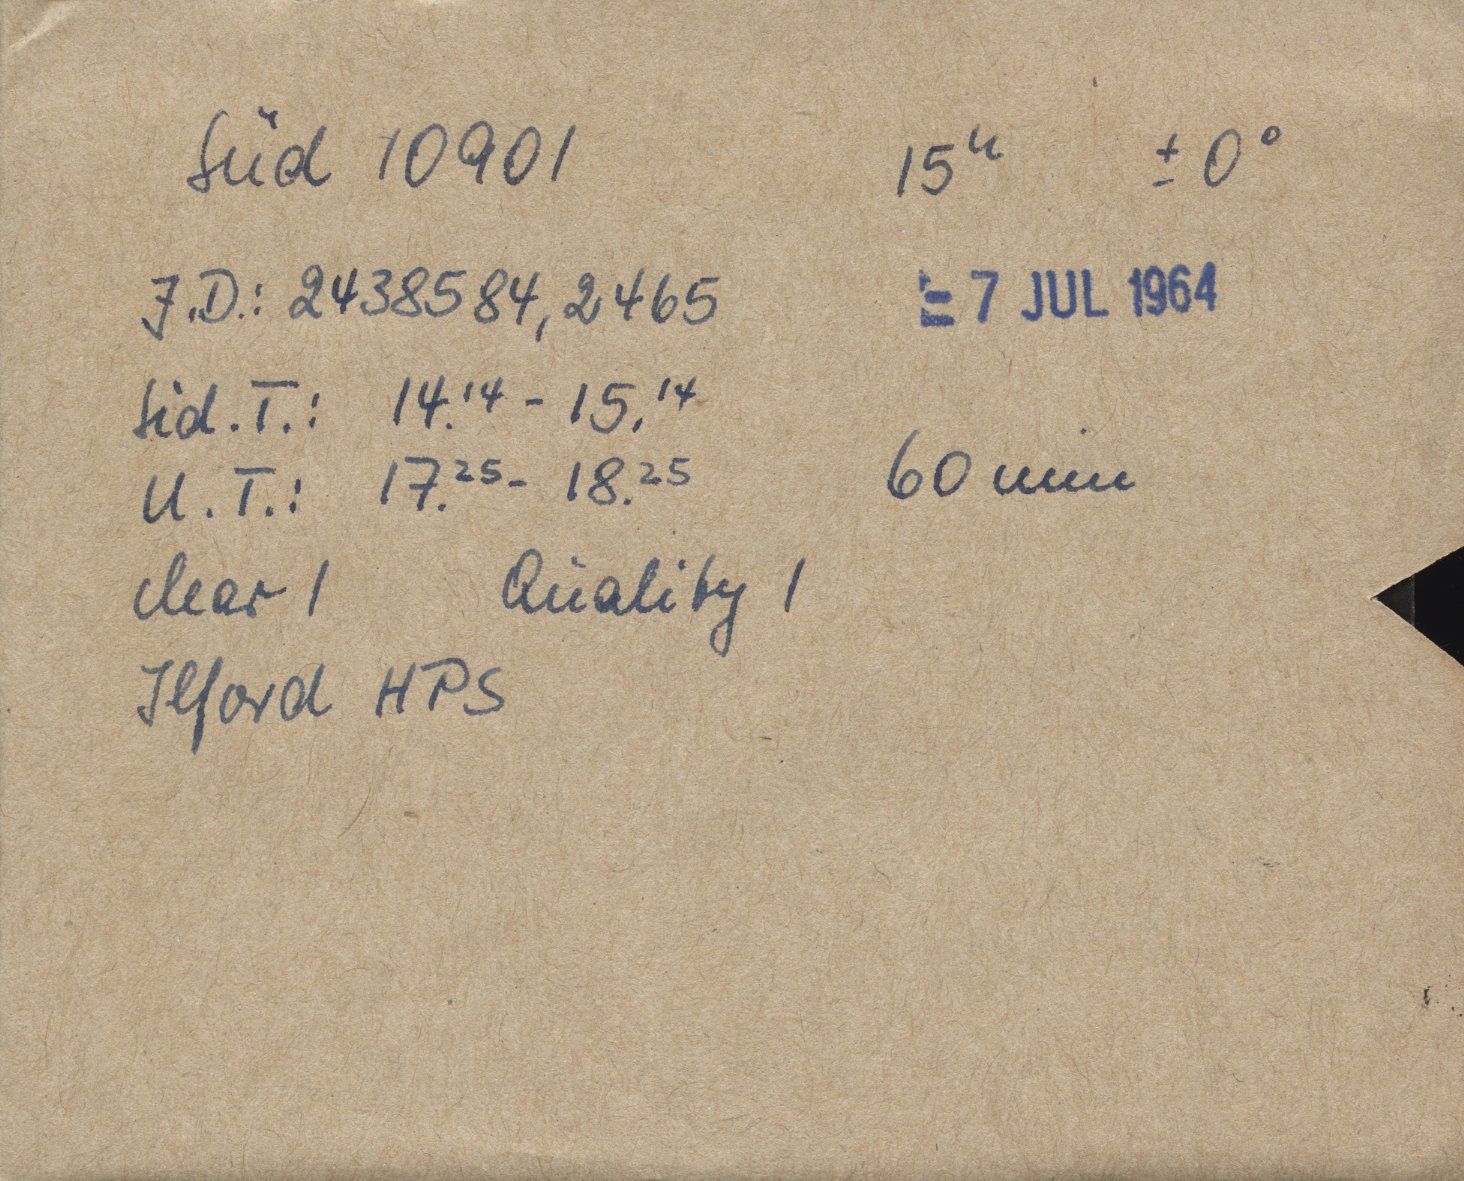 Süd 10901 15ʰ ± 0°
J.D.: 2438584,2465 7 JUL 1964
Sid.T.: 14.14 - 15.14
U.T.: 17.25 - 18.25 60 min
clear 1 Quality 1
Ilford HPS